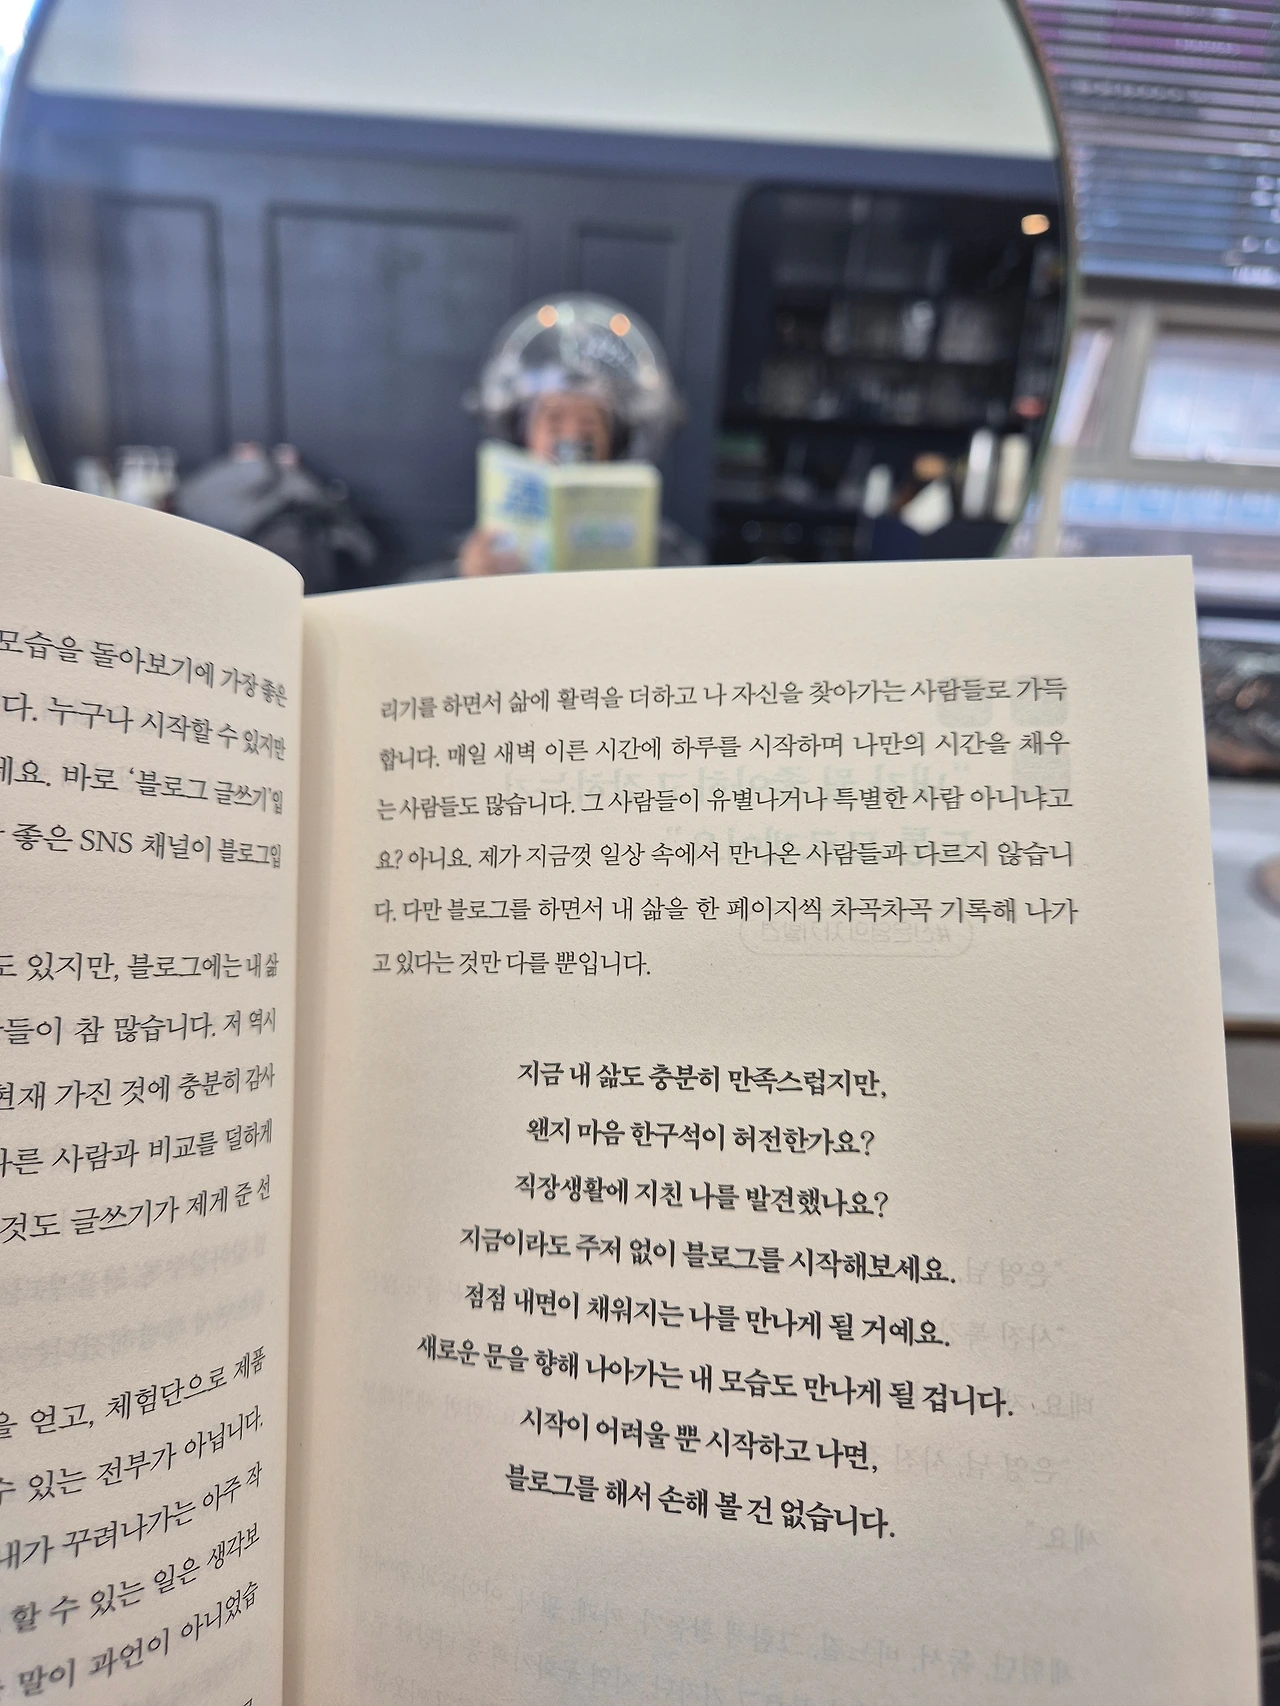 모습을 돌아보기에 가장 좋은
다. 누구나 시작할 수 있지만
세요. 바로 ‘블로그 글쓰기’입
좋은 SNS 채널이 블로그입
도 있지만, 블로그에는 내 삶
들이 참 많습니다. 저 역시
현재 가진 것에 충분히 감사
다른 사람과 비교를 덜하게
것도 글쓰기가 제게 준 선
을 얻고, 체험단으로 제품
수 있는 전부가 아닙니다.
내가 꾸려나가는 아주 작
할 수 있는 일은 생각보
말이 과언이 아니었습
리기를 하면서 삶에 활력을 더하고 나 자신을 찾아가는 사람들로 가득
합니다. 매일 새벽 이른 시간에 하루를 시작하며 나만의 시간을 채우
는 사람들도 많습니다. 그 사람들이 유별나거나 특별한 사람 아니냐고
요? 아니요. 제가 지금껏 일상 속에서 만나온 사람들과 다르지 않습니
다. 다만 블로그를 하면서 내 삶을 한 페이지씩 차곡차곡 기록해 나가
고 있다는 것만 다를 뿐입니다.
지금 내 삶도 충분히 만족스럽지만,
왠지 마음 한구석이 허전한가요?
직장생활에 지친 나를 발견했나요?
지금이라도 주저 없이 블로그를 시작해보세요.
점점 내면이 채워지는 나를 만나게 될 거예요.
새로운 문을 향해 나아가는 내 모습도 만나게 될 겁니다.
시작이 어려울 뿐 시작하고 나면,
블로그를 해서 손해 볼 건 없습니다.